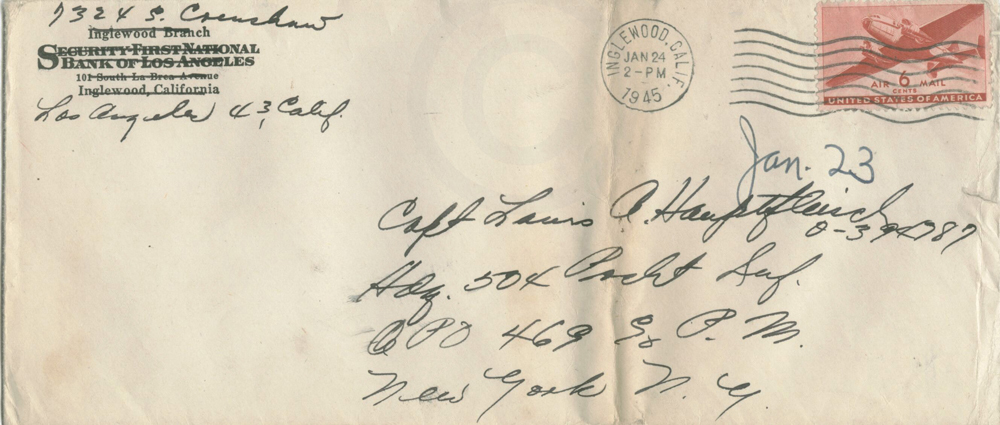 7324 S. Crenshaw
Inglewood Branch
SECURITY-FIRST NATIONAL
BANK OF LOS ANGELES
101 South La Brea Avenue
Inglewood, California
Los Angeles 43, Calif.
INGLEWOOD, CALIF.
JAN 24
2-PM
1945
AIR 6 MAIL
CENTS
UNITED STATES OF AMERICA
Jan. 23
Capt Louis A. Hauptfleisch
O-394787
Hdq. 504 Prcht Inf.
APO 469 % P. M.
New York N. Y.